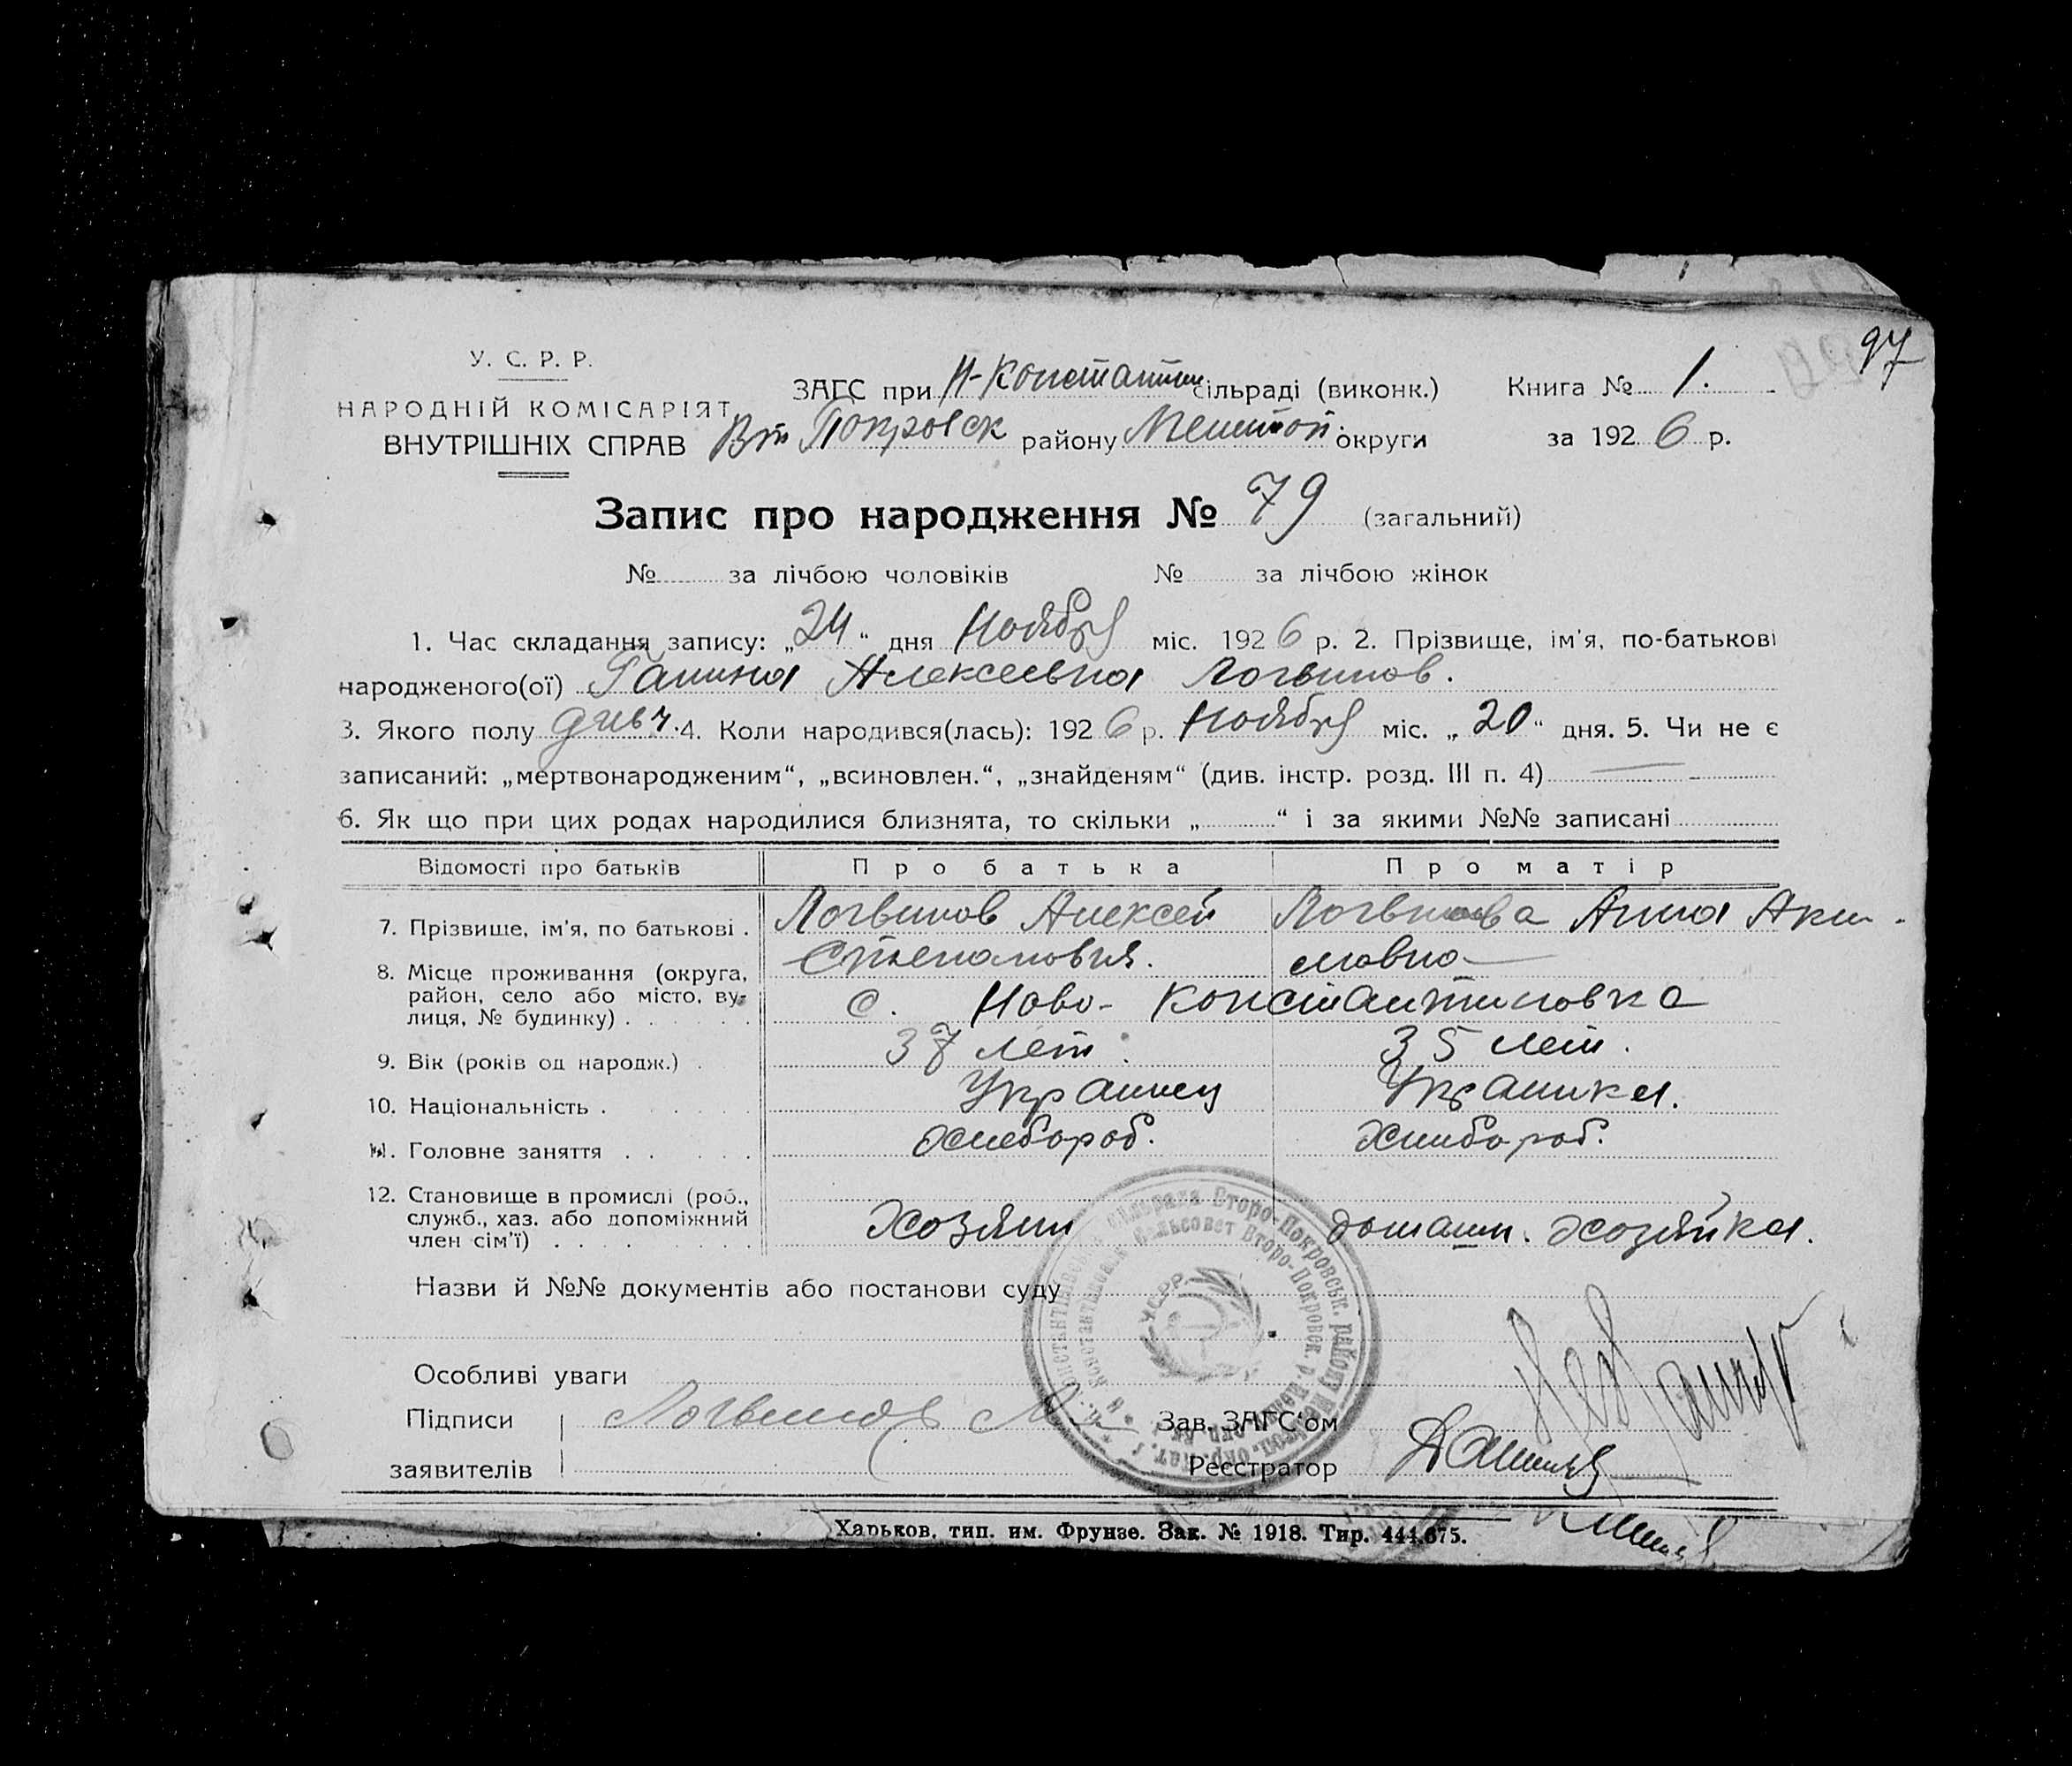 97
У. С. Р. Р.
НАРОДНІЙ КОМІСАРІЯТ
ВНУТРІШНІХ СПРАВ
ЗАГС при Н-Константин сільраді (виконк.) Книга № 1.
Вт Покровск району Мелитоп. округи за 1926 р.
Запис про народження № 79 (загальний)
№ за лічбою чоловіків № за лічбою жінок
1. Час складання запису: „24“ дня Ноября міс. 1926 р. 2. Прізвище, ім'я, по-батькові
народженого(ої) Галина Алексеевна Логвинов.
3. Якого полу дивч. 4. Коли народився(лась): 1926 р. Ноября міс. „20“ дня. 5. Чи не є
записаний: „мертвонародженим“, „всиновлен.“, „знайденям“ (див. інстр. розд. III п. 4) —
6. Як що при цих родах народилися близнята, то скільки „ “ і за якими №№ записані
Відомості про батьків Про батька Про матір
7. Прізвище, ім'я, по батькові . Логвинов Алексей Логвинова Анна Аки-
Степанович. мовна
8. Місце проживання (округа, район, село або місто, вулиця, № будинку) . с. Ново-Константиновка
9. Вік (років од народж.) . 37 лет. 35 лет.
10. Національність . Украинец Украинка.
11. Головне заняття . Хлебороб. Хлибороб.
12. Становище в промислі (роб., служб., хаз. або допоміжний член сім'ї) . Хозяин домашн. хозяйка.
Назви й №№ документів або постанови суду
Особливі уваги
Підписи Логвинов Зав. ЗАГС'ом
заявителів Реєстратор
У.С.Р.Р.
Харьков, тип. им. Фрунзе. Зак. № 1918. Тир. 444.675.